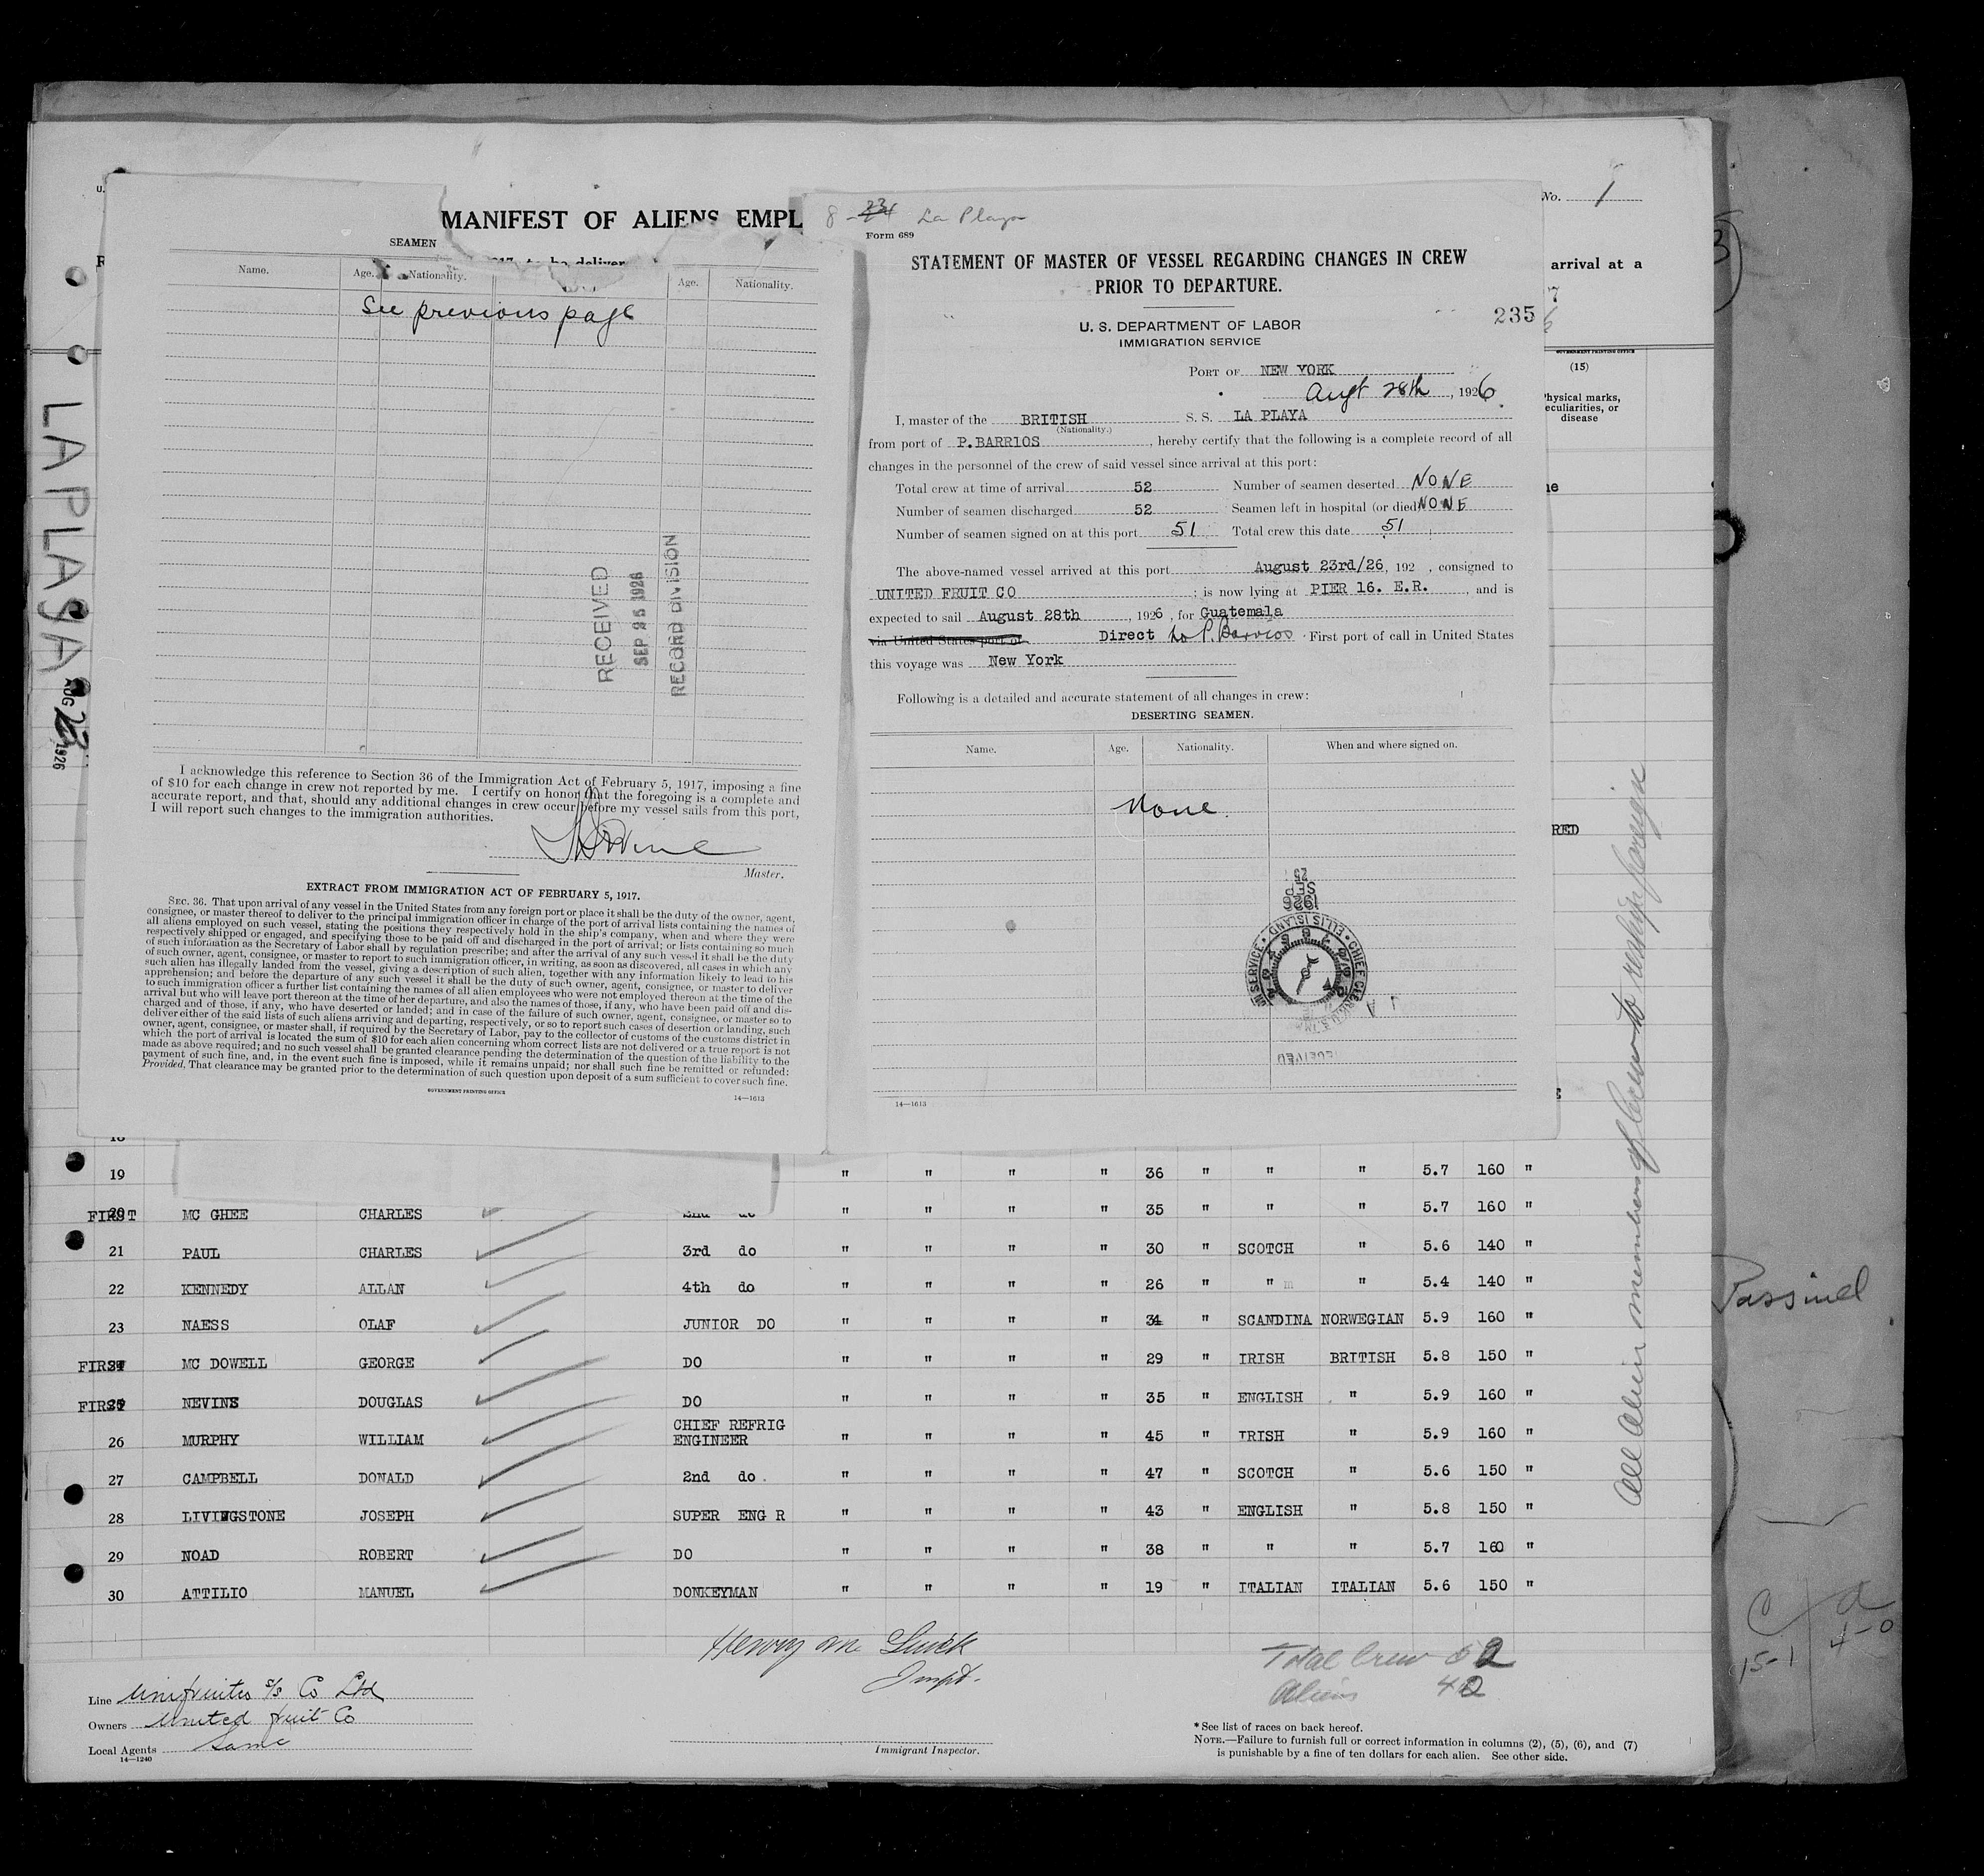 U.
MANIFEST OF ALIENS EMPL
No. 1
arrival at a
LA PLAYA
AUG 23 1926
SEAMEN
Name. Age. Nationality. Age. Nationality.
See previous page
RECEIVED
SEP 25 1926
RECORD DIVISION
I acknowledge this reference to Section 36 of the Immigration Act of February 5, 1917, imposing a fine
of $10 for each change in crew not reported by me. I certify on honor that the foregoing is a complete and
accurate report, and that, should any additional changes in crew occur before my vessel sails from this port,
I will report such changes to the immigration authorities.
Master.
EXTRACT FROM IMMIGRATION ACT OF FEBRUARY 5, 1917.
SEC. 36. That upon arrival of any vessel in the United States from any foreign port or place it shall be the duty of the owner, agent,
consignee, or master thereof to deliver to the principal immigration officer in charge of the port of arrival lists containing the names of
all aliens employed on such vessel, stating the positions they respectively hold in the ship's company, when and where they were
respectively shipped or engaged, and specifying those to be paid off and discharged in the port of arrival; or lists containing so much
of such information as the Secretary of Labor shall by regulation prescribe; and after the arrival of any such vessel it shall be the duty
of such owner, agent, consignee, or master to report to such immigration officer, in writing, as soon as discovered, all cases in which any
such alien has illegally landed from the vessel, giving a description of such alien, together with any information likely to lead to his
apprehension; and before the departure of any such vessel it shall be the duty of such owner, agent, consignee, or master to deliver
to such immigration officer a further list containing the names of all alien employees who were not employed thereon at the time of the
arrival but who will leave port thereon at the time of her departure, and also the names of those, if any, who have been paid off and dis-
charged and of those, if any, who have deserted or landed; and in case of the failure of such owner, agent, consignee, or master so to
deliver either of the said lists of such aliens arriving and departing, respectively, or so to report such cases of desertion or landing, such
owner, agent, consignee, or master shall, if required by the Secretary of Labor, pay to the collector of customs of the customs district in
which the port of arrival is located the sum of $10 for each alien concerning whom correct lists are not delivered or a true report is not
made as above required; and no such vessel shall be granted clearance pending the determination of the question of the liability to the
payment of such fine, and, in the event such fine is imposed, while it remains unpaid; nor shall such fine be remitted or refunded:
Provided, That clearance may be granted prior to the determination of such question upon deposit of a sum sufficient to cover such fine.
GOVERNMENT PRINTING OFFICE
14—1613
8- La Playa
Form 689
STATEMENT OF MASTER OF VESSEL REGARDING CHANGES IN CREW
PRIOR TO DEPARTURE.
235
U. S. DEPARTMENT OF LABOR
IMMIGRATION SERVICE
PORT OF NEW YORK
Augt 28th, 1926.
I, master of the BRITISH S. S. LA PLAYA
(Nationality.)
from port of P.BARRIOS, hereby certify that the following is a complete record of all
changes in the personnel of the crew of said vessel since arrival at this port:
Total crew at time of arrival 52 Number of seamen deserted NONE
Number of seamen discharged 52 Seamen left in hospital (or died) NONE
Number of seamen signed on at this port 51 Total crew this date 51
The above-named vessel arrived at this port August 23rd/26, 192 , consigned to
UNITED FRUIT CO ; is now lying at PIER 16. E.R. , and is
expected to sail August 28th , 1926 , for Guatemala
via United States port of Direct to P. Barrios . First port of call in United States
this voyage was New York
Following is a detailed and accurate statement of all changes in crew:
DESERTING SEAMEN.
Name. Age. Nationality. When and where signed on.
None
SEP 25 1926
CHIEF CLERK, ELLIS ISLAND
RECEIVED
14—1613
GOVERNMENT PRINTING OFFICE
(15)
Physical marks,
peculiarities, or
disease
RED
All Alien members of Crew to reship foreign
18
19 " " " " 36 " " " 5.7 160 "
FIRST 20 MC GHEE CHARLES 2nd do " " " " 35 " " " 5.7 160 "
21 PAUL CHARLES 3rd do " " " " 30 " SCOTCH " 5.6 140 "
22 KENNEDY ALLAN 4th do " " " " 26 " " " 5.4 140 "
23 NAESS OLAF JUNIOR DO " " " " 34 " SCANDINA NORWEGIAN 5.9 160 "
FIRST 24 MC DOWELL GEORGE DO " " " " 29 " IRISH BRITISH 5.8 150 "
FIRST 25 NEVINS DOUGLAS DO " " " " 35 " ENGLISH " 5.9 160 "
26 MURPHY WILLIAM CHIEF REFRIG ENGINEER " " " " 45 " IRISH " 5.9 160 "
27 CAMPBELL DONALD 2nd do. " " " " 47 " SCOTCH " 5.6 150 "
28 LIVINGSTONE JOSEPH SUPER ENG R " " " " 43 " ENGLISH " 5.8 150 "
29 NOAD ROBERT DO " " " " 38 " " " 5.7 160 "
30 ATTILIO MANUEL DONKEYMAN " " " " 19 " ITALIAN ITALIAN 5.6 150 "
Total Crew 52
Aliens 42
Line Unifruitco S/S Co Ltd
Owners United Fruit Co
Local Agents Same
14—1240
Inspt.
Immigrant Inspector.
* See list of races on back hereof.
NOTE.—Failure to furnish full or correct information in columns (2), (5), (6), and (7)
is punishable by a fine of ten dollars for each alien. See other side.
15-1
4-0